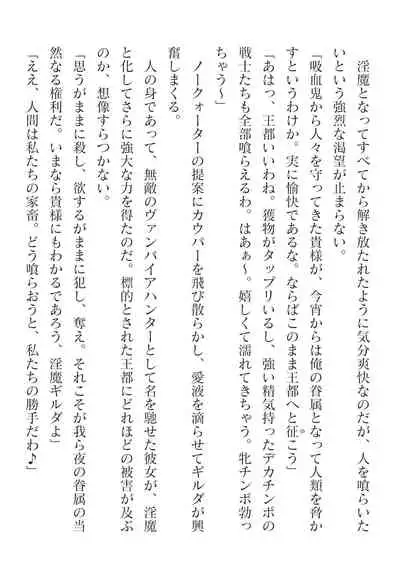 淫魔となってすべてから解き放たれたように気分爽快なのだが、人を喰らいた
いという強烈な渇望が止まらない。
「吸血鬼から人々を守ってきた貴様が、今宵からは俺の眷属となって人類を脅か
すというわけか。実に愉快であるな。ならばこのまま王都へと征こう」
「あはっ、王都いいわね。獲物がタップリいるし、強い精気持ったデカチンポの
戦士たちも全部喰らえるわ。はあぁ～。嬉しくて濡れてきちゃう。牝チンポ勃っ
ちゃう～」
ノークォーターの提案にカウパーを飛び散らかし、愛液を滴らせてギルダが興
奮しまくる。
人の身であって、無敵のヴァンパイアハンターとして名を馳せた彼女が、淫魔
と化してさらに強大な力を得たのだ。標的とされた王都にどれほどの被害が及ぶ
のか、想像すらつかない。
「思うがままに殺し、欲するがままに犯し、奪え。それこそが我ら夜の眷属の当
然なる権利だ。いまなら貴様にもわかるであろう、淫魔ギルダよ」
「ええ、人間は私たちの家畜。どう喰らおうと、私たちの勝手だわ♪」